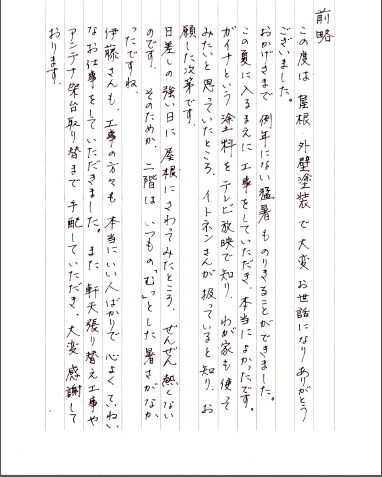 前略
この度は 屋根・外壁塗装で大変お世話になりありがとう
ございました。
おかげさまで例年にない猛暑ものりきることができました。
この夏に入るまえに工事をしていただき、本当によかったです。
ガイナという塗料をテレビ放映で知り、わが家も使って
みたいと思っていたところ、イトネンさんが扱っていると知り、お
願いした次第です。
日差しの強い日に屋根にさわってみたところ、ぜんぜん熱くない
のです。そのためか、二階はいつもの“むっ”とした暑さがなか
ったですね。
伊藤さんも、工事の方々も本当にいい人ばかりで心よくていねい
なお仕事をしていただきました。また、軒天張り替え工事や
アンテナ架台取り替まで手配していただき、大変感謝して
おります。